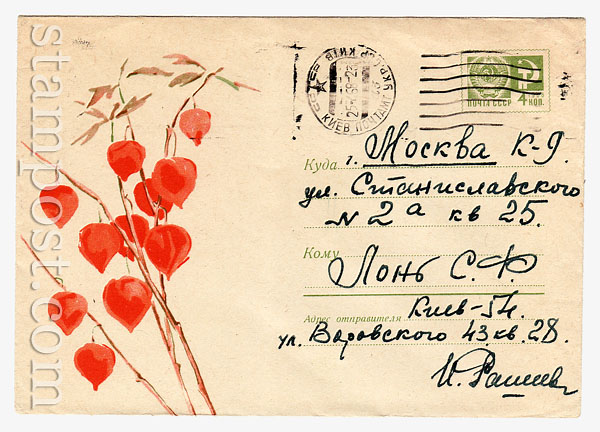 stampost.com
КИЕВ ПОЧТАМТ
ПОЧТА СССР
4 КОП.
Куда г. Москва К-9.
ул. Станиславского
N 2а кв 25.
Кому
Лонь С.Ф.
Адрес отправителя Киев-54.
ул. Воровского 43 кв. 28.